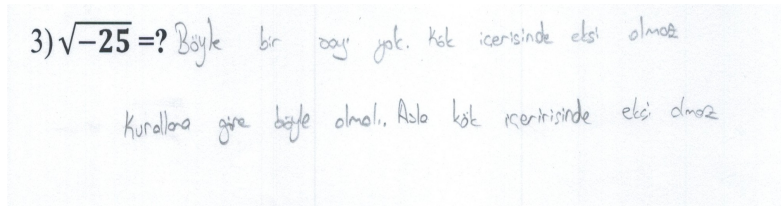 3) √-25 =? Böyle bir sayı yok. Kök icerisinde eksi olmaz
Kurallara göre böyle olmalı. Asla kök içeririsinde eksi olmaz